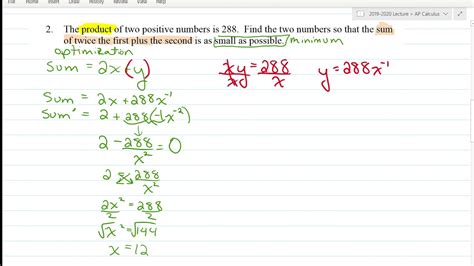 2019-2020 Lecture > AP Calculus
2. The product of two positive numbers is 288. Find the two numbers so that the sum
of twice the first plus the second is as small as possible./minimum
optimization
Sum = 2x + y
xy = 288
x x
y = 288x⁻¹
Sum = 2x + 288x⁻¹
Sum' = 2 + 288(-1x⁻²)
2 - 288/x² = 0
2 288/x²
2x² = 288
2 2
√x² = √144
x = 12